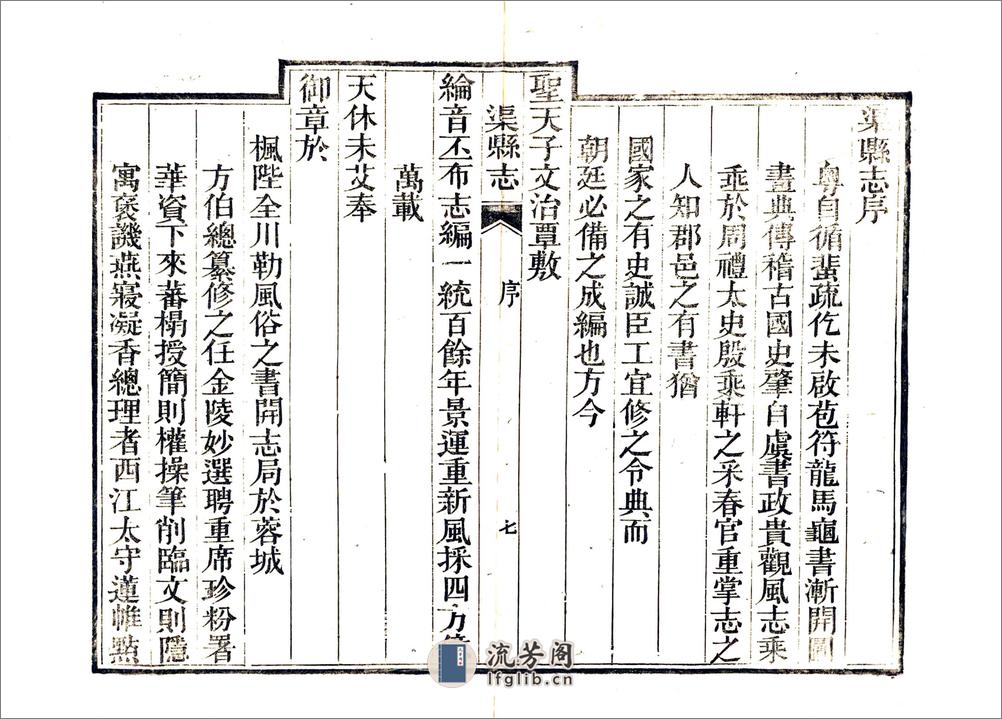 渠縣志序
粤自循蜚疏仡未啟苞符龍馬龜書漸開圖
畫典傳稽古國史肇自虞書政貴觀風志乘
垂於周禮太史殷乘軒之采春官重掌志之
人知郡邑之有書猶
國家之有史誠臣工宜修之令典而
朝廷必備之成編也方今
聖天子文治覃敷
渠縣志
序
七
綸音丕布志編一統百餘年景運重新風採四方
萬載
天休未艾奉
御章於
楓陛全川勒風俗之書開志局於蓉城
方伯總纂修之任金陵妙選聘重席珍粉署
華資下來蕃榻授簡則權操筆削臨文則隱
寓褒譏燕寢凝香總理者西江太守蓮帷點
流芳阁
lfglib.cn